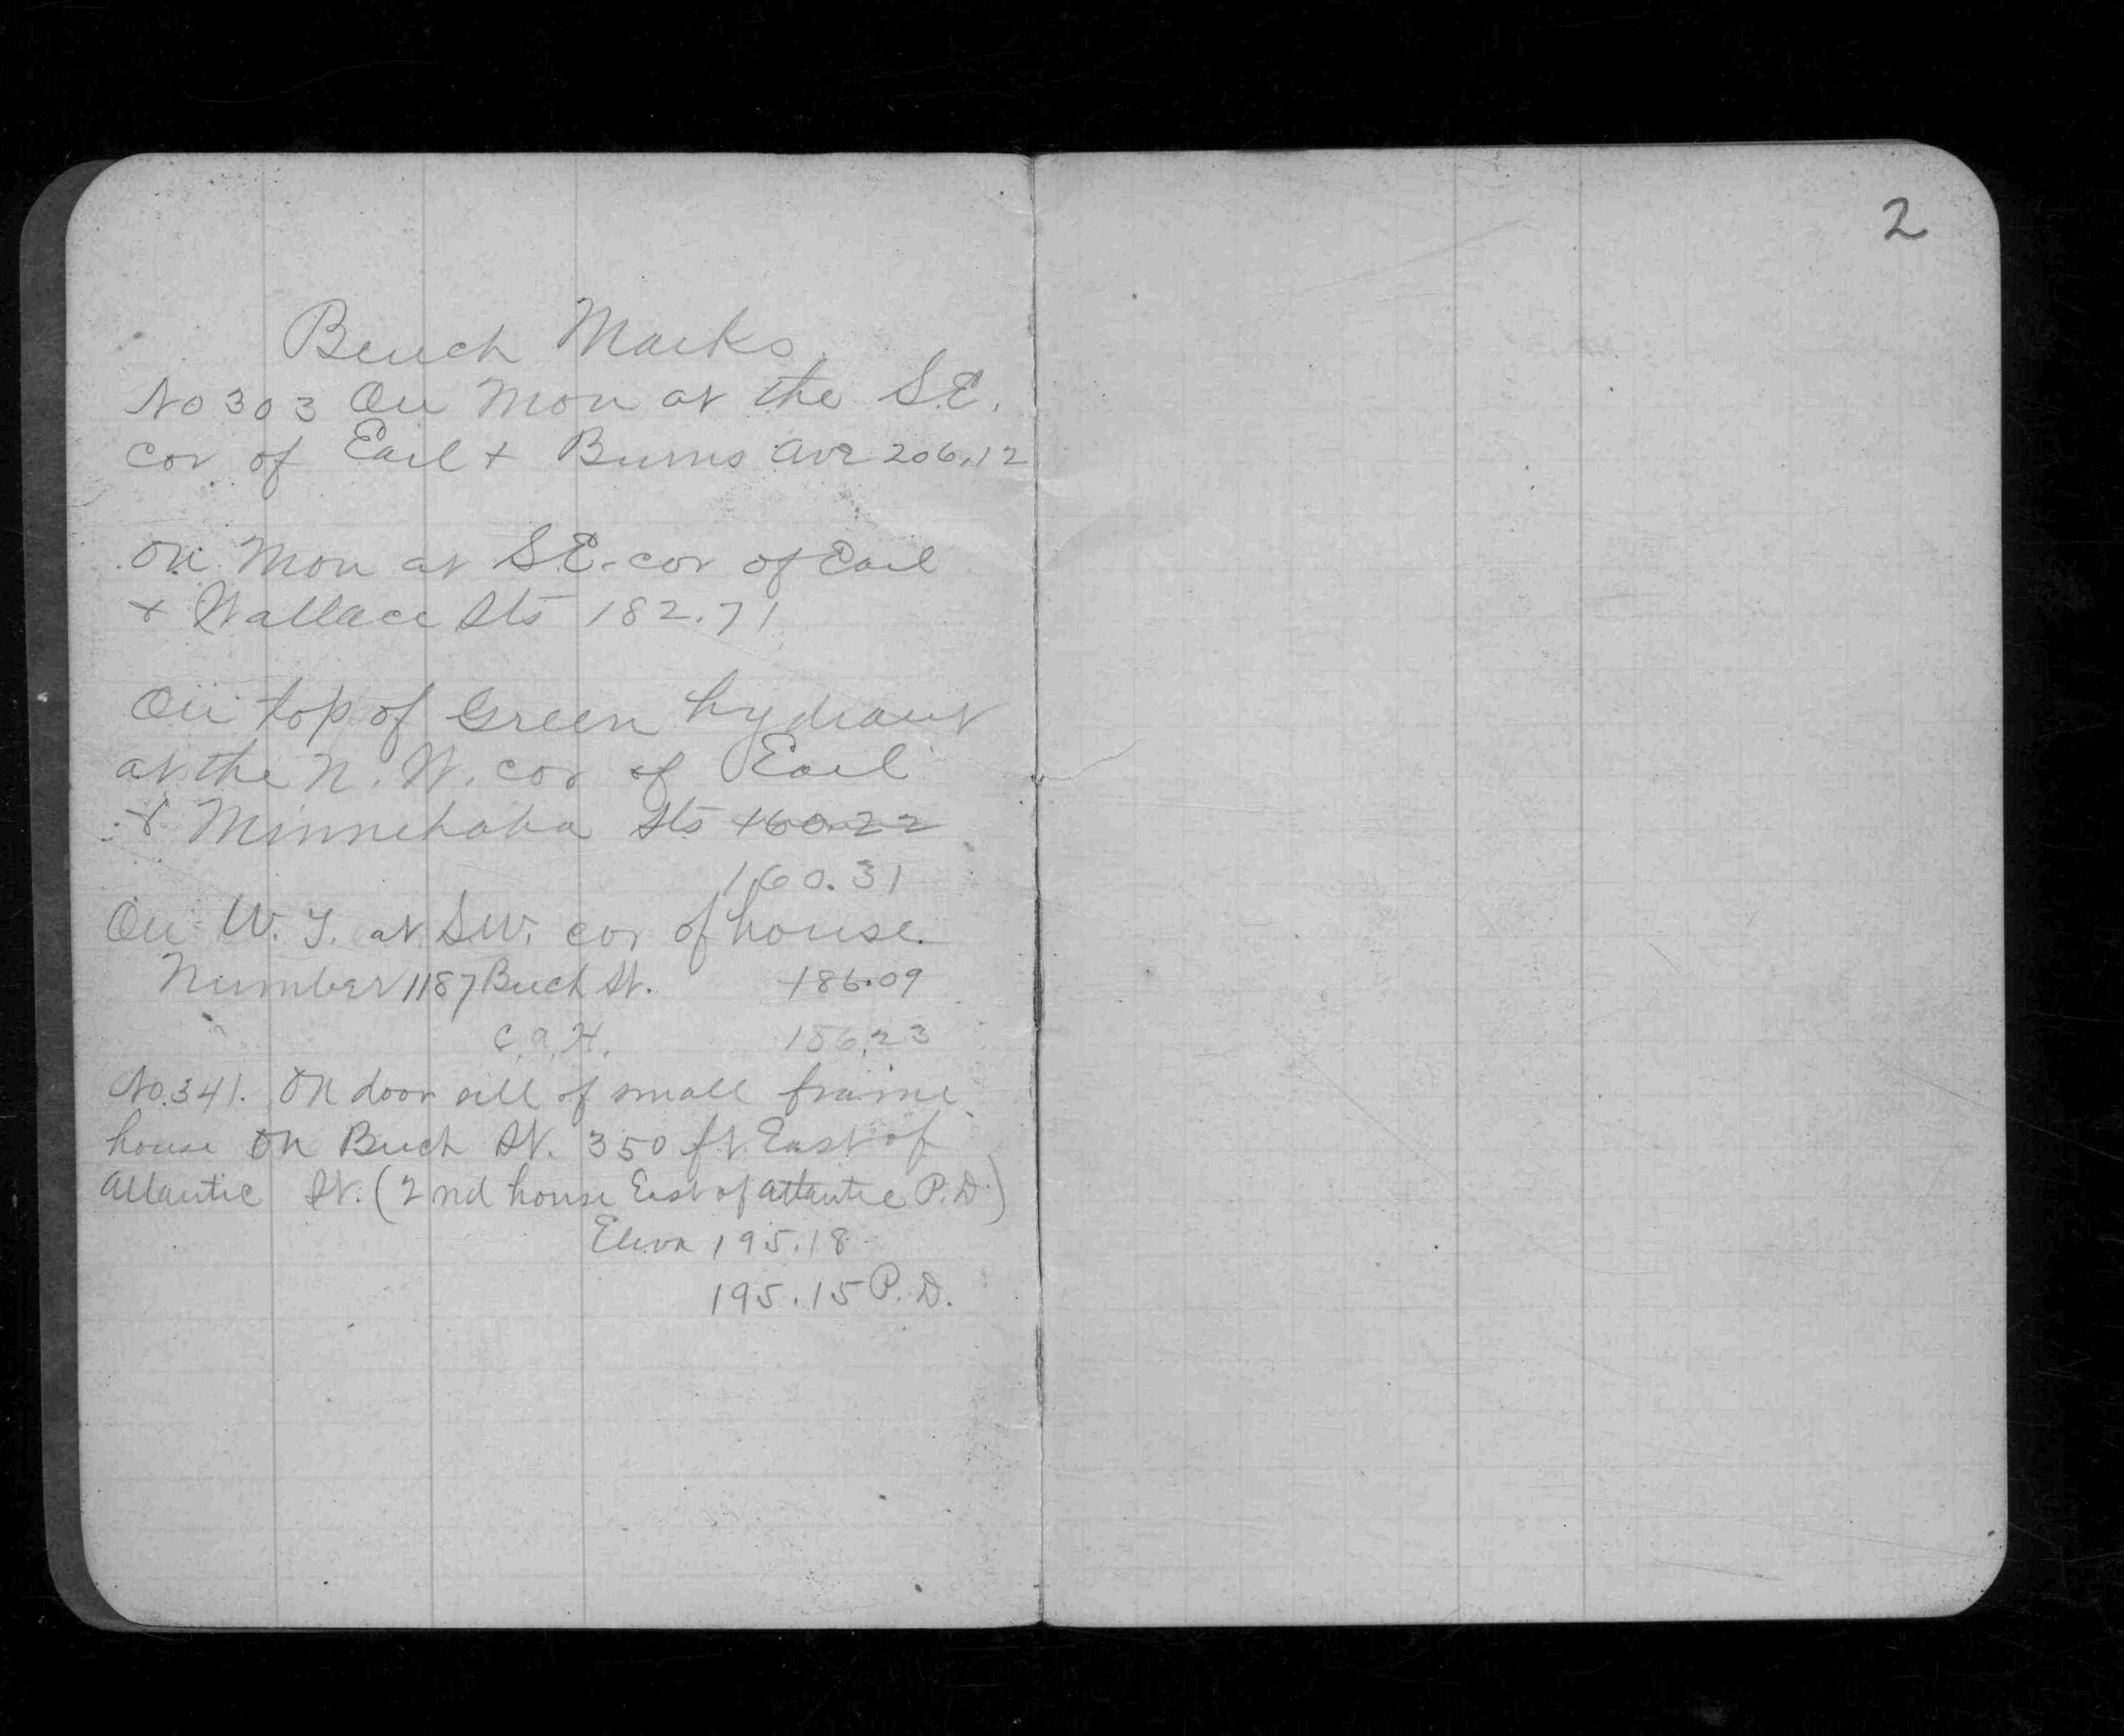 Bench Marks
No 303 On Mon at the S.E.
cor of Earl + Burns ave 206.12
On Mon at SE. cor of Earl
+ Wallace Sts 182.71
On top of Green hydrant
at the N. W. cor of Earl
+ Minnehaha Sts 160.22
160.31
On W. T. at S.W. cor of house
Number 1187 Beech St. 186.09
C.A.H. 186.23
No. 341. On door sill of small frame
house on Beech St. 350 ft East of
Atlantic St. (2nd house East of Atlantic P.D.)
Eleva 195.18
195.15 P.D.
2